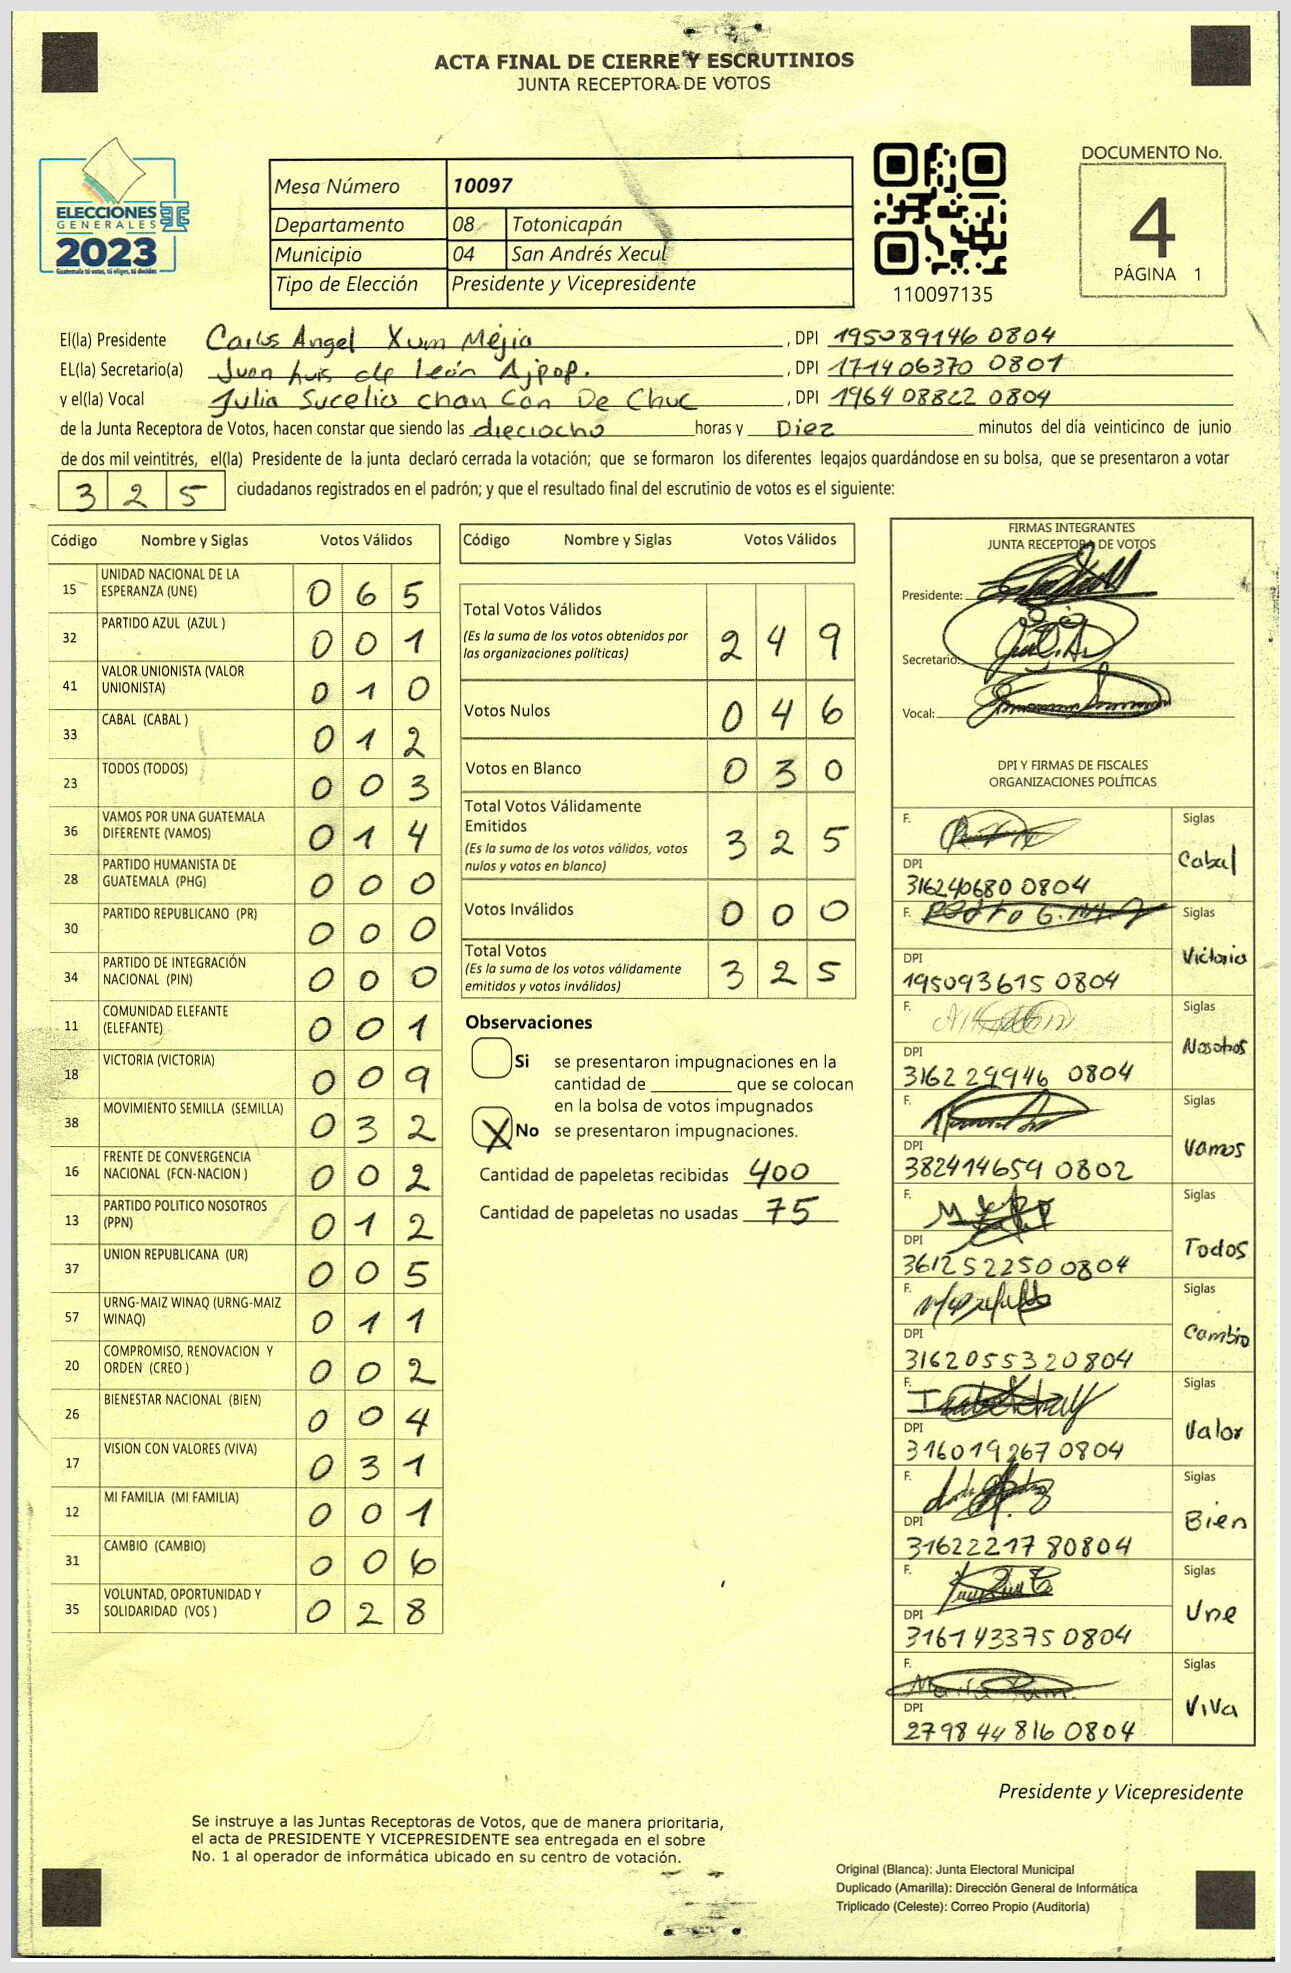 ACTA FINAL DE CIERRE Y ESCRUTINIOS
JUNTA RECEPTORA DE VOTOS
ELECCIONES
GENERALES
2023
Guatemala tú votas, tú eliges, tú decides
Mesa Número 10097
Departamento 08 Totonicapán
Municipio 04 San Andrés Xecul
Tipo de Elección Presidente y Vicepresidente
110097135
DOCUMENTO No.
4
PÁGINA 1
El(la) Presidente Carlos Angel Xum Mejia, DPI 195089146 0804
EL(la) Secretario(a) Juan Luis de León Ajpop., DPI 171406370 0801
y el(la) Vocal Julia Sucelia chan Can De Chuc, DPI 1964 08822 0804
de la Junta Receptora de Votos, hacen constar que siendo las dieciocho horas y Diez minutos del día veinticinco de junio
de dos mil veintitrés, el(la) Presidente de la junta declaró cerrada la votación; que se formaron los diferentes legajos guardándose en su bolsa, que se presentaron a votar
3 2 5 ciudadanos registrados en el padrón; y que el resultado final del escrutinio de votos es el siguiente:
Código Nombre y Siglas Votos Válidos
15 UNIDAD NACIONAL DE LA ESPERANZA (UNE) 0 6 5
32 PARTIDO AZUL (AZUL ) 0 0 1
41 VALOR UNIONISTA (VALOR UNIONISTA) 0 1 0
33 CABAL (CABAL ) 0 1 2
23 TODOS (TODOS) 0 0 3
36 VAMOS POR UNA GUATEMALA DIFERENTE (VAMOS) 0 1 4
28 PARTIDO HUMANISTA DE GUATEMALA (PHG) 0 0 0
30 PARTIDO REPUBLICANO (PR) 0 0 0
34 PARTIDO DE INTEGRACIÓN NACIONAL (PIN) 0 0 0
11 COMUNIDAD ELEFANTE (ELEFANTE) 0 0 1
18 VICTORIA (VICTORIA) 0 0 9
38 MOVIMIENTO SEMILLA (SEMILLA) 0 3 2
16 FRENTE DE CONVERGENCIA NACIONAL (FCN-NACION ) 0 0 2
13 PARTIDO POLITICO NOSOTROS (PPN) 0 1 2
37 UNION REPUBLICANA (UR) 0 0 5
57 URNG-MAIZ WINAQ (URNG-MAIZ WINAQ) 0 1 1
20 COMPROMISO, RENOVACION Y ORDEN (CREO ) 0 0 2
26 BIENESTAR NACIONAL (BIEN) 0 0 4
17 VISION CON VALORES (VIVA) 0 3 1
12 MI FAMILIA (MI FAMILIA) 0 0 1
31 CAMBIO (CAMBIO) 0 0 6
35 VOLUNTAD, OPORTUNIDAD Y SOLIDARIDAD (VOS ) 0 2 8
Código Nombre y Siglas Votos Válidos
Total Votos Válidos 2 4 9
(Es la suma de los votos obtenidos por
las organizaciones políticas)
Votos Nulos 0 4 6
Votos en Blanco 0 3 0
Total Votos Válidamente
Emitidos 3 2 5
(Es la suma de los votos válidos, votos
nulos y votos en blanco)
Votos Inválidos 0 0 0
Total Votos 3 2 5
(Es la suma de los votos válidamente
emitidos y votos inválidos)
Observaciones
Si se presentaron impugnaciones en la
cantidad de ________ que se colocan
en la bolsa de votos impugnados
X No se presentaron impugnaciones.
Cantidad de papeletas recibidas 400
Cantidad de papeletas no usadas 75
FIRMAS INTEGRANTES
JUNTA RECEPTORA DE VOTOS
Presidente:
Secretario:
Vocal:
DPI Y FIRMAS DE FISCALES
ORGANIZACIONES POLÍTICAS
F. Siglas
DPI Cabal
316240680 0804
F. Siglas
DPI Victoria
195093615 0804
F. Siglas
DPI Nosotros
316229946 0804
F. Siglas
DPI Vamos
382414659 0802
F. Siglas
DPI Todos
361252250 0804
F. Siglas
DPI Cambio
316205532 0804
F. Siglas
DPI Valor
316019267 0804
F. Siglas
DPI Bien
316222178 0804
F. Siglas
DPI Une
316143375 0804
F. Siglas
DPI Viva
279844816 0804
Presidente y Vicepresidente
Se instruye a las Juntas Receptoras de Votos, que de manera prioritaria,
el acta de PRESIDENTE Y VICEPRESIDENTE sea entregada en el sobre
No. 1 al operador de informática ubicado en su centro de votación.
Original (Blanca): Junta Electoral Municipal
Duplicado (Amarilla): Dirección General de Informática
Triplicado (Celeste): Correo Propio (Auditoría)